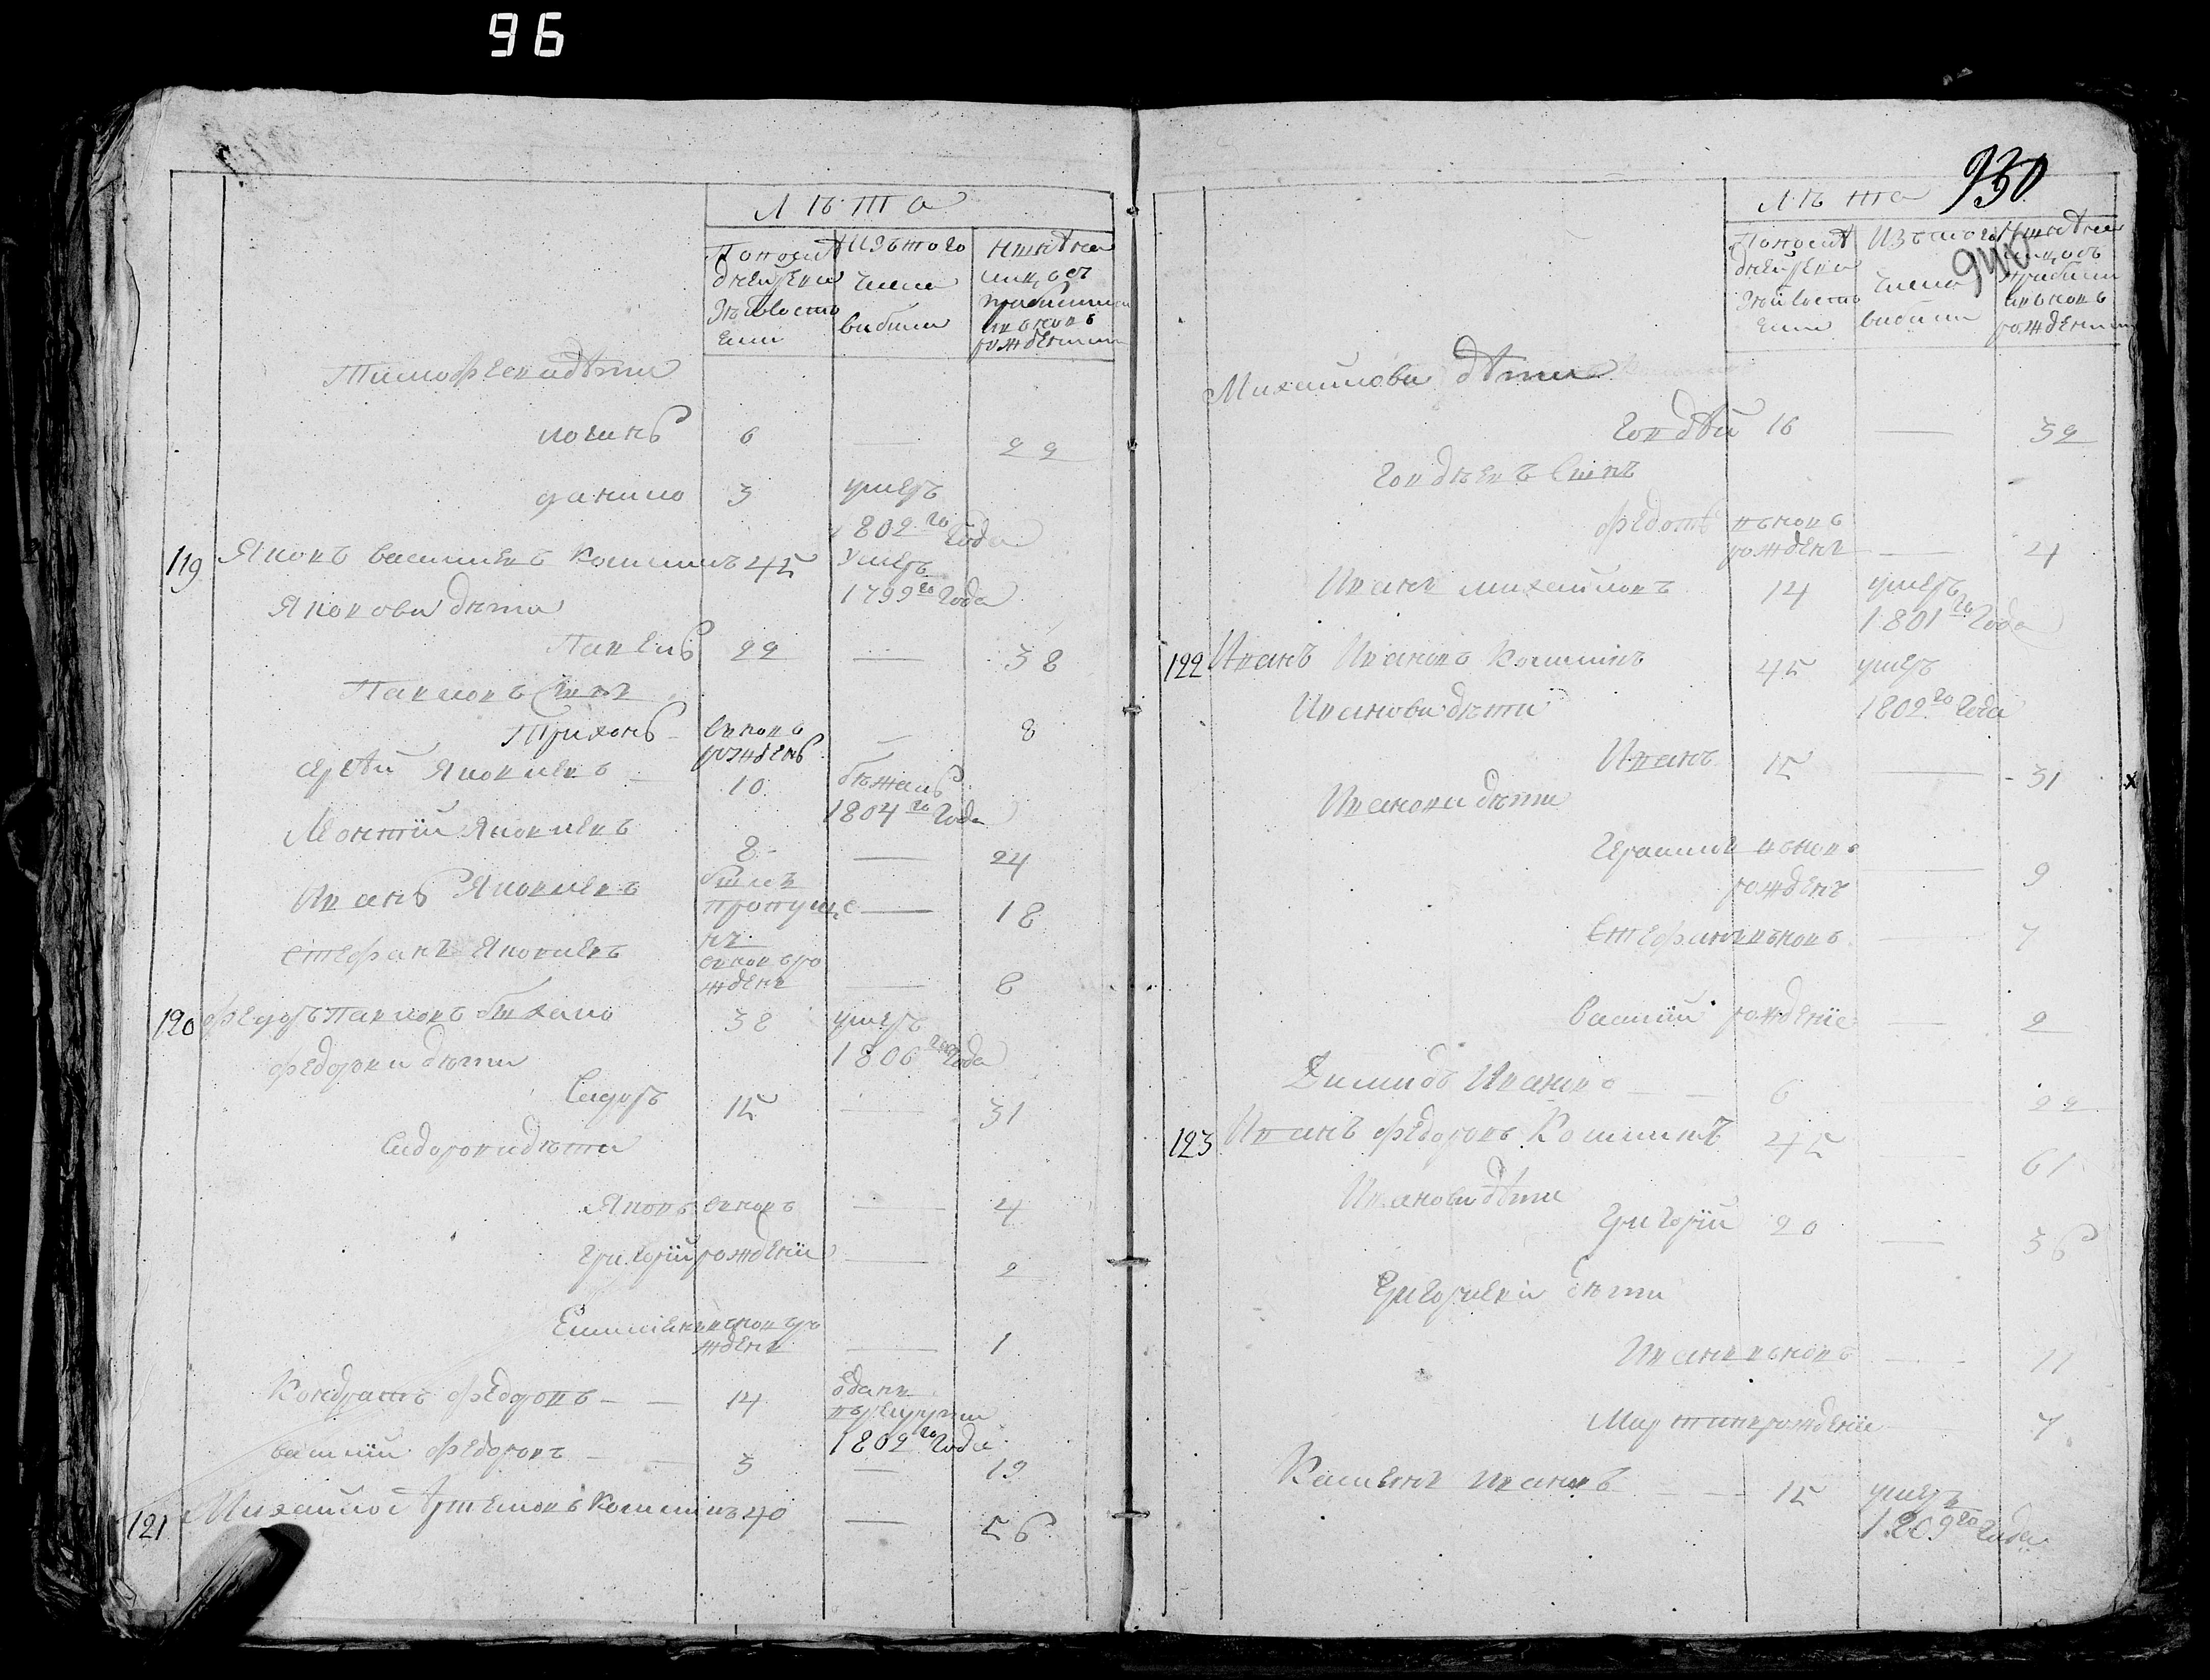 96
Лѣта
По последней ревизіи состояли
Изъ того числа выбыли
Ныне на лицо съ прибылыми и вновь рожденными
Тимофеевы дѣти
логинъ 6 — 22
данило 3 умеръ
1802 го Года
119 Яковъ васильевъ Кошкинъ 45 умеръ
1799 го Года
Яковovы дѣти
Павелъ 22 — 38
Павловъ Сынъ
Трихонъ вновь рожденъ — 8
Яковлевъ — 10 бѣжалъ
1804 го Года
Леонтій Яковлевъ 8 — 24
Иванъ Яковлевъ былъ пропущенъ — 18
Стефанъ Яковлевъ вновь рожденъ — 8
120 Федоръ Павловъ 38 умеръ
1806 Года
Федоровы дѣти
Сидоръ 15 — 31
Сидоровы дѣти
Яковъ вновь — 4
Григорій рожденіи — 2
Емильянъ вновь рожденъ — 1
Кондратъ Федоровъ — 14 отданъ
въ рекруты
1802 го Года
василій Федоровъ — 3 — 19
121 Михайло Артемовъ Кошкинъ 40 — 56
930
940
Лѣта
По последней ревизіи состояли
Изъ того числа выбыли
Ныне на лицо съ прибылыми и вновь рожденными
Михайловы дѣти
Гордѣй 16 — 32
Гордѣевъ Сынъ
Федотъ вновь рожденъ — 4
Иванъ михайловъ 14 умеръ
1801 го Года
122 Иванъ Ивановъ Кошкинъ 45 умеръ
1802 го Года
Ивановы дѣти
Иванъ 15 — 31 x
Ивановы дѣти
Герасимъ вновь рожденъ — 9
Стефанъ вновь — 7
Василій рожденіе — 2
Димидъ Ивановъ — 6 — 22
123 Иванъ Федоровъ Кошкинъ 45 — 61
Ивановы дѣти
Григорій 20 — 36
Григорьевы дѣти
Иванъ вновь — 11
Мартинъ рожденіи — 7
Касьянъ Ивановъ — 15 умеръ
1809 го Года